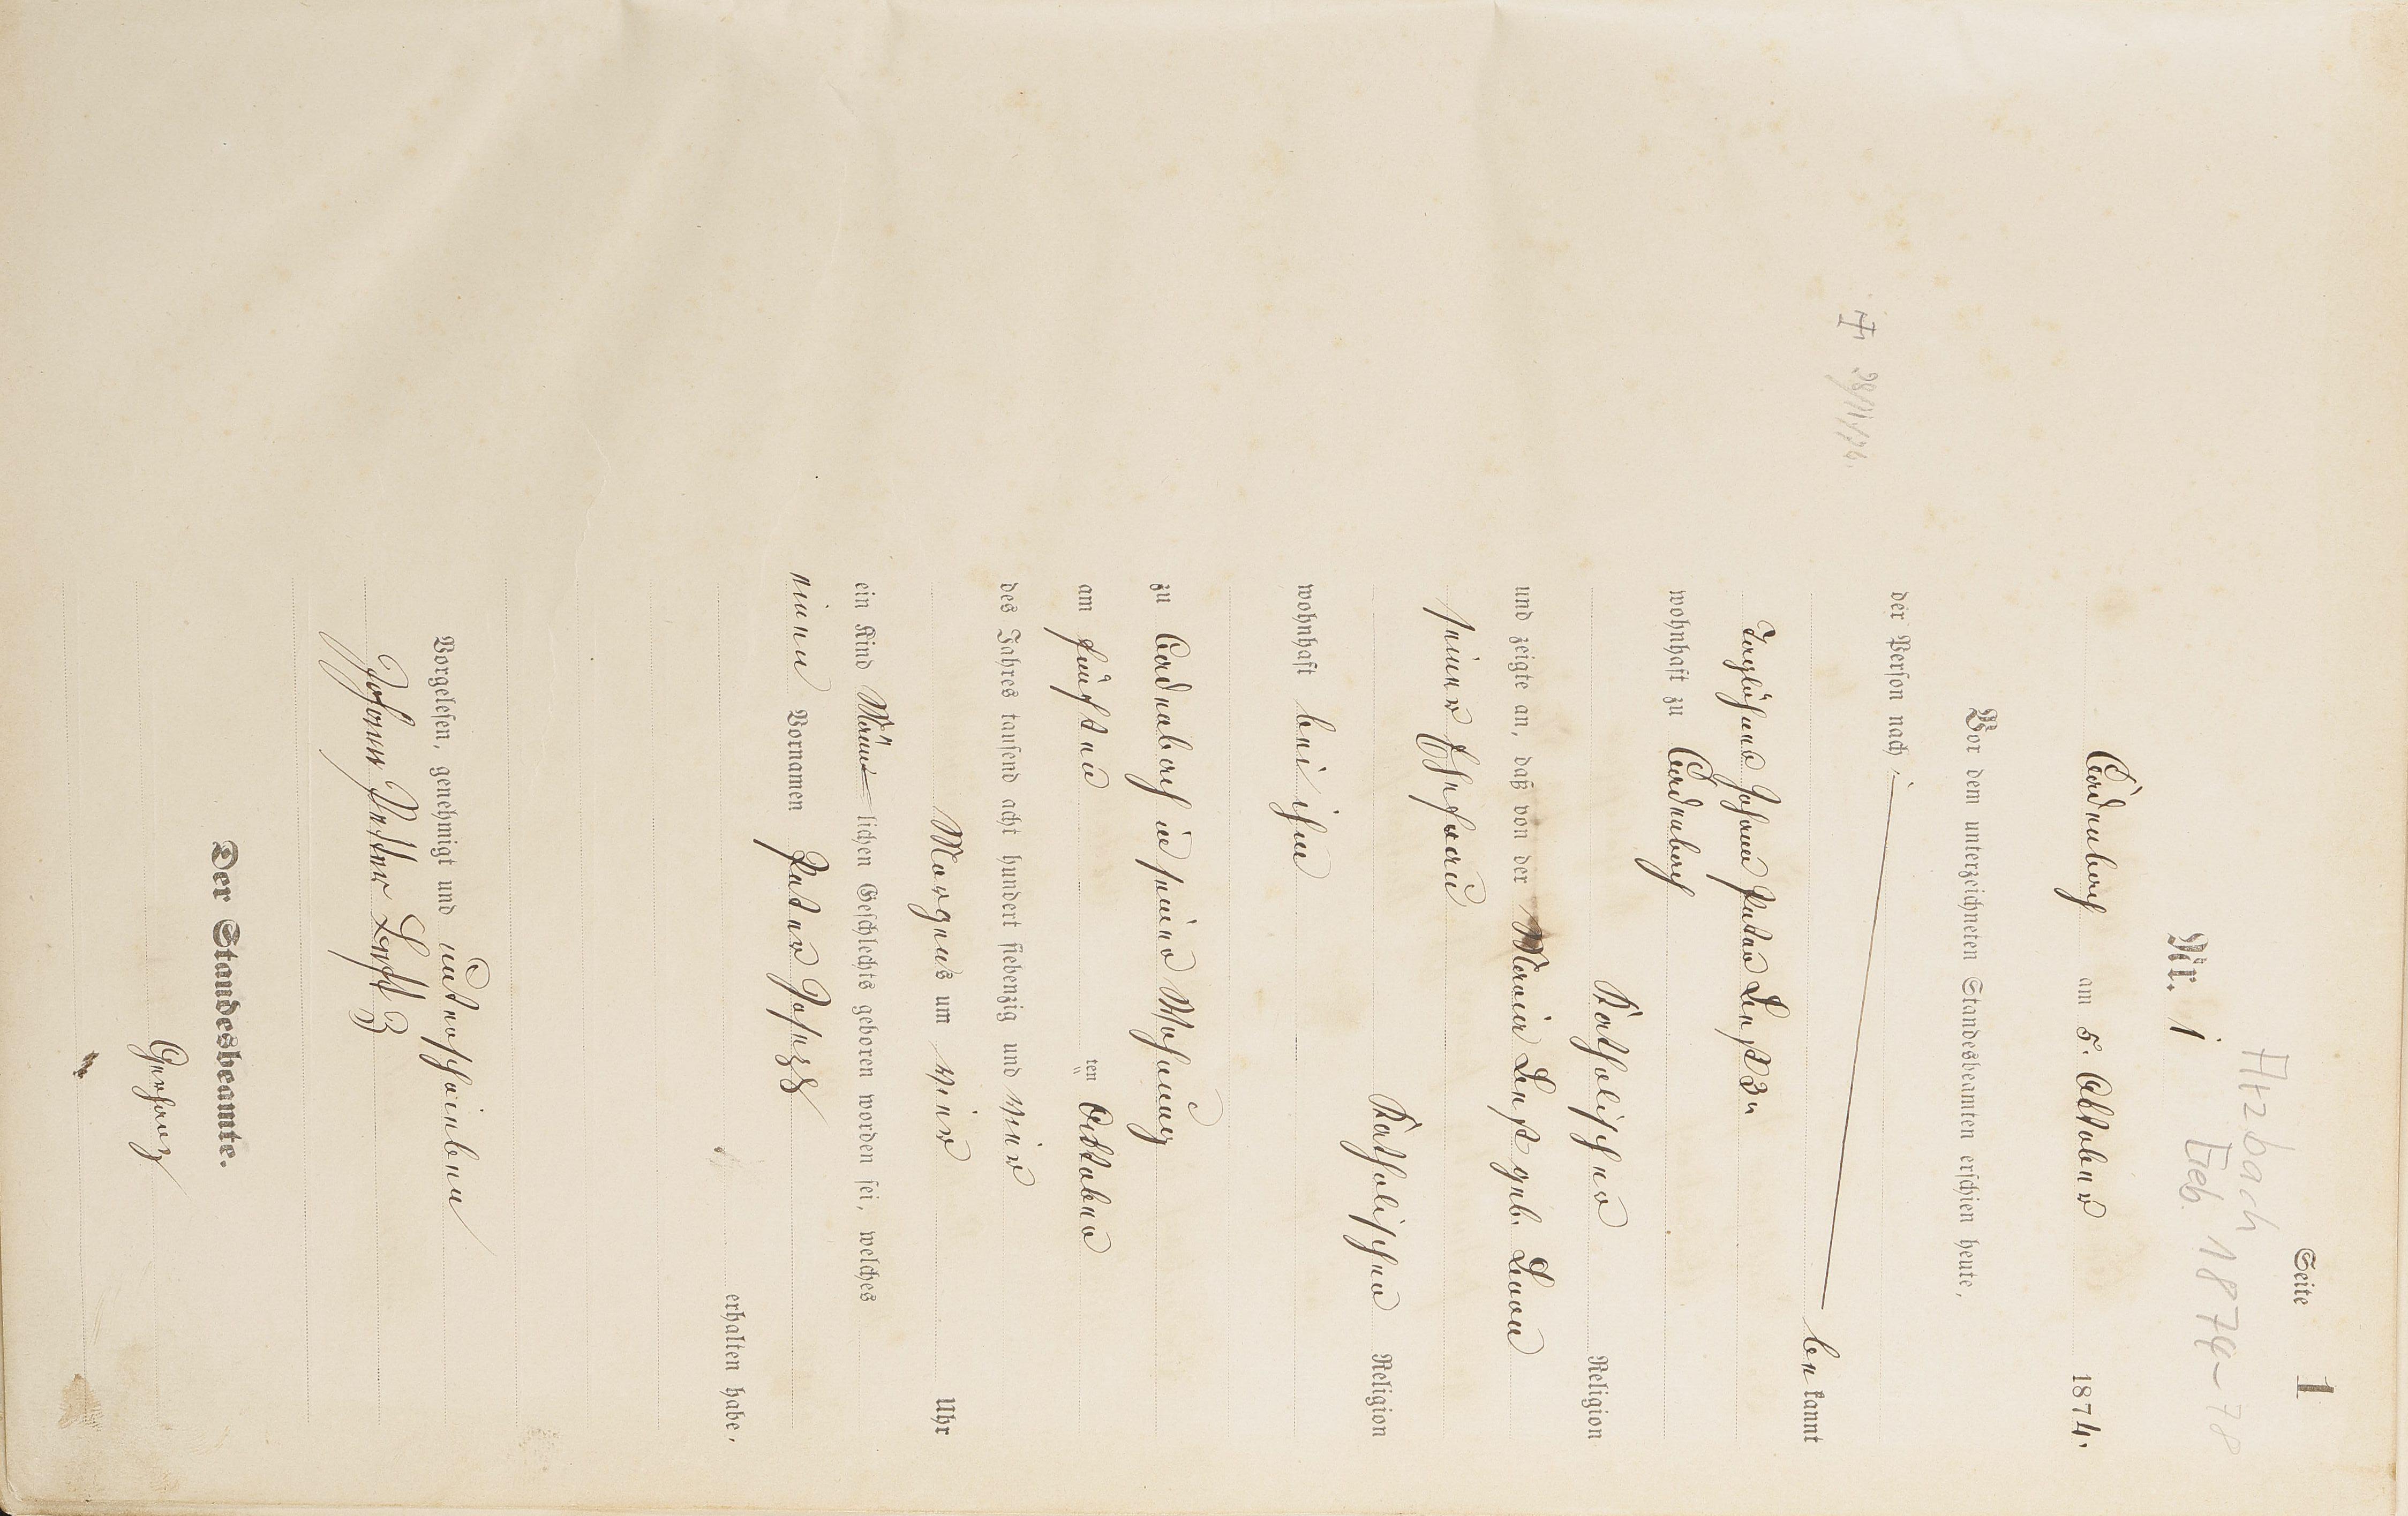 Seite 1
Atzbach
Geb. 1874-78
Nr. 1
Cadenbach am 5. Oktober 1874.
Vor dem unterzeichneten Standesbeamten erschien heute,
der Person nach
be kannt
Taglöhner Johann Peter Lest 3r
wohnhaft zu Cadenbach
Katholischer Religion
und zeigte an, daß von der Maria Lest geb. Leon
seiner Ehefrau
Katholischen Religion
wohnhaft bei ihm
zu Cadenbach in seiner Wohnung
am fünften ten October
des Jahres tausend acht hundert siebenzig und vier
Morgens um vier Uhr
ein Kind Männ lichen Geschlechts geboren worden sei, welches
einen Vornamen Peter Joseph
erhalten habe.
Vorgelesen, genehmigt und unterschrieben
Johann Petter 3
Der Standesbeamte.